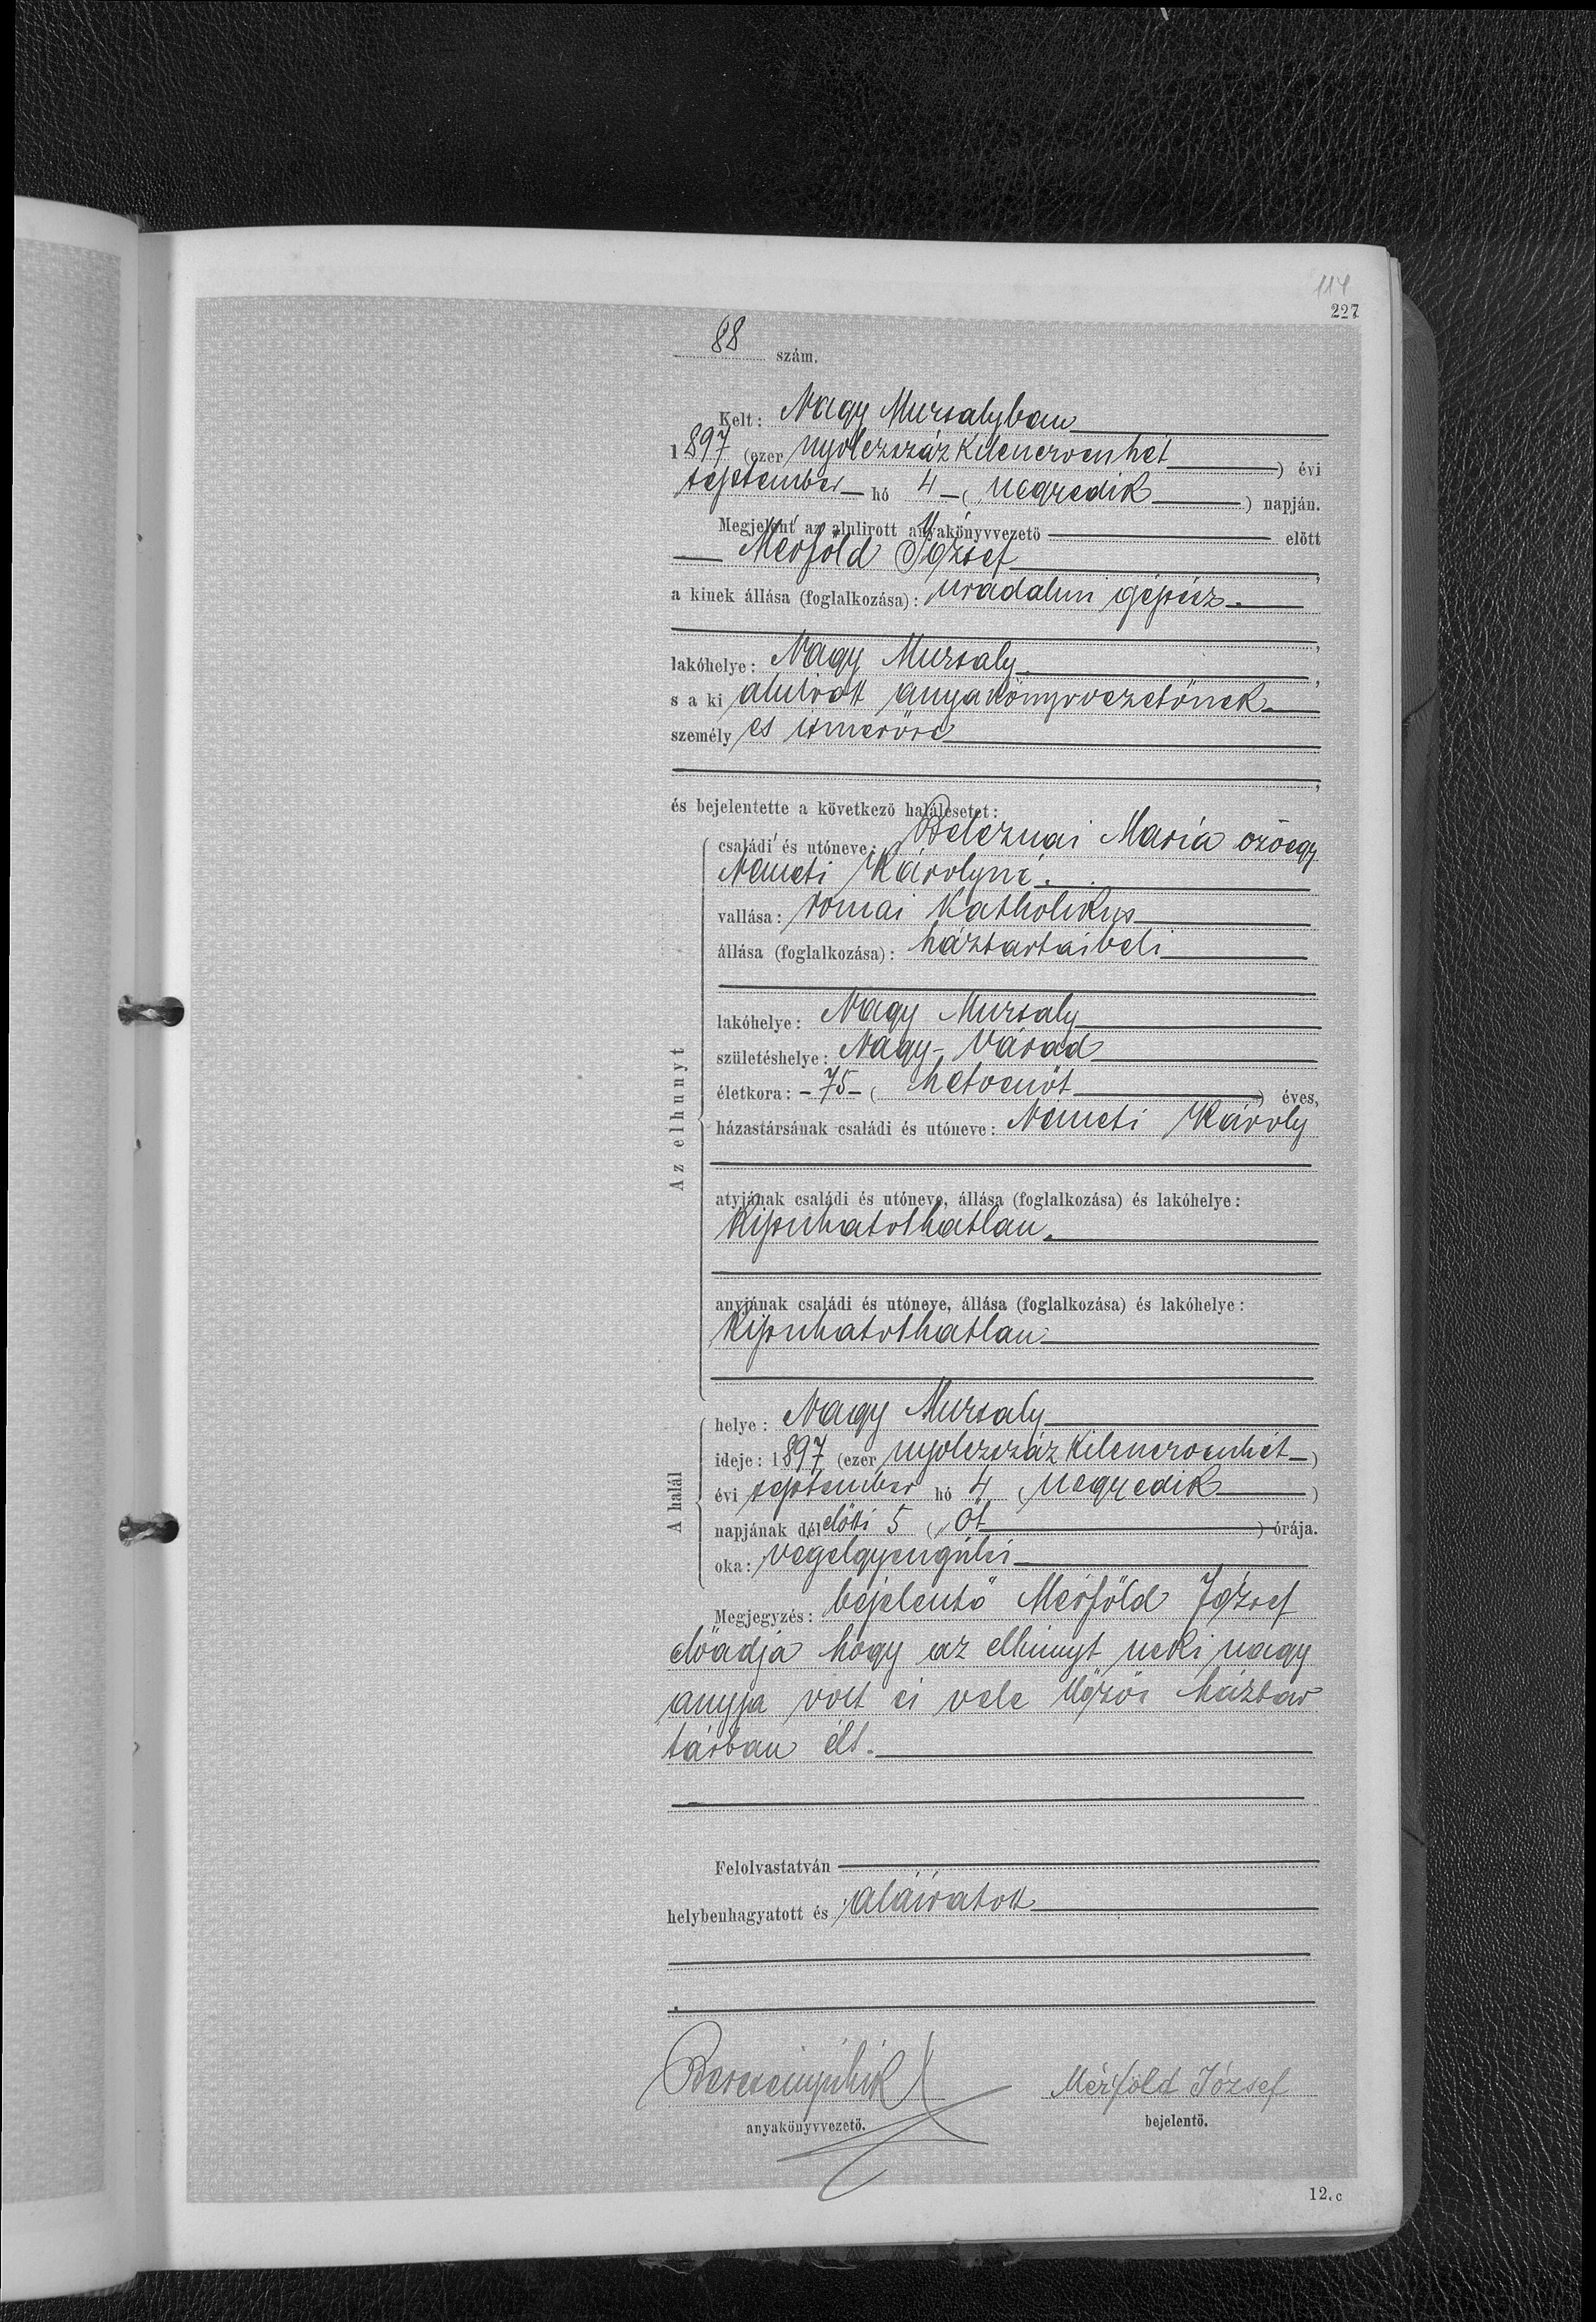 114
227
88 szám.
Kelt: Nagy Muzsalyban
1897 (ezer nyolczszáz kilenczvenhét) évi
september hó 4 (negyedik) napján.
Megjelent az alulirott anyakönyvvezető előtt
Mérföld József,
a kinek állása (foglalkozása): uradalmi gépész.
lakóhelye: Nagy Muzsaly,
s a ki alulirott anyakönyvvezetőnek
személyes ismerőse
és bejelentette a következő halálesetet:
Az elhunyt
családi és utóneve: Beleznai Mária özvegy
Németi Károlyné.
vallása: római katholikus
állása (foglalkozása): háztartásbeli
lakóhelye: Nagy Muzsaly
születéshelye: Nagy-Várad
életkora: -75- (hetvenöt) éves,
házastársának családi és utóneve: Németi Károly
atyjának családi és utóneve, állása (foglalkozása) és lakóhelye:
kipuhatolhatlan.
anyjának családi és utóneve, állása (foglalkozása) és lakóhelye:
kipuhatolhatlan
A halál
helye: Nagy Muzsaly
ideje: 1897 (ezer nyolczszáz kilenczvenhét)
évi september hó 4 (negyedik)
napjának délelőtti 5 (öt) órája.
oka: végelgyengülés
Megjegyzés: bejelentő Mérföld József
előadja hogy az elhunyt neki nagy
anyja volt és vele közös háztar
tásban élt.
Felolvastatván
helybenhagyatott és aláiratott
anyakönyvvezető.
Mérföld József
bejelentő.
12. c